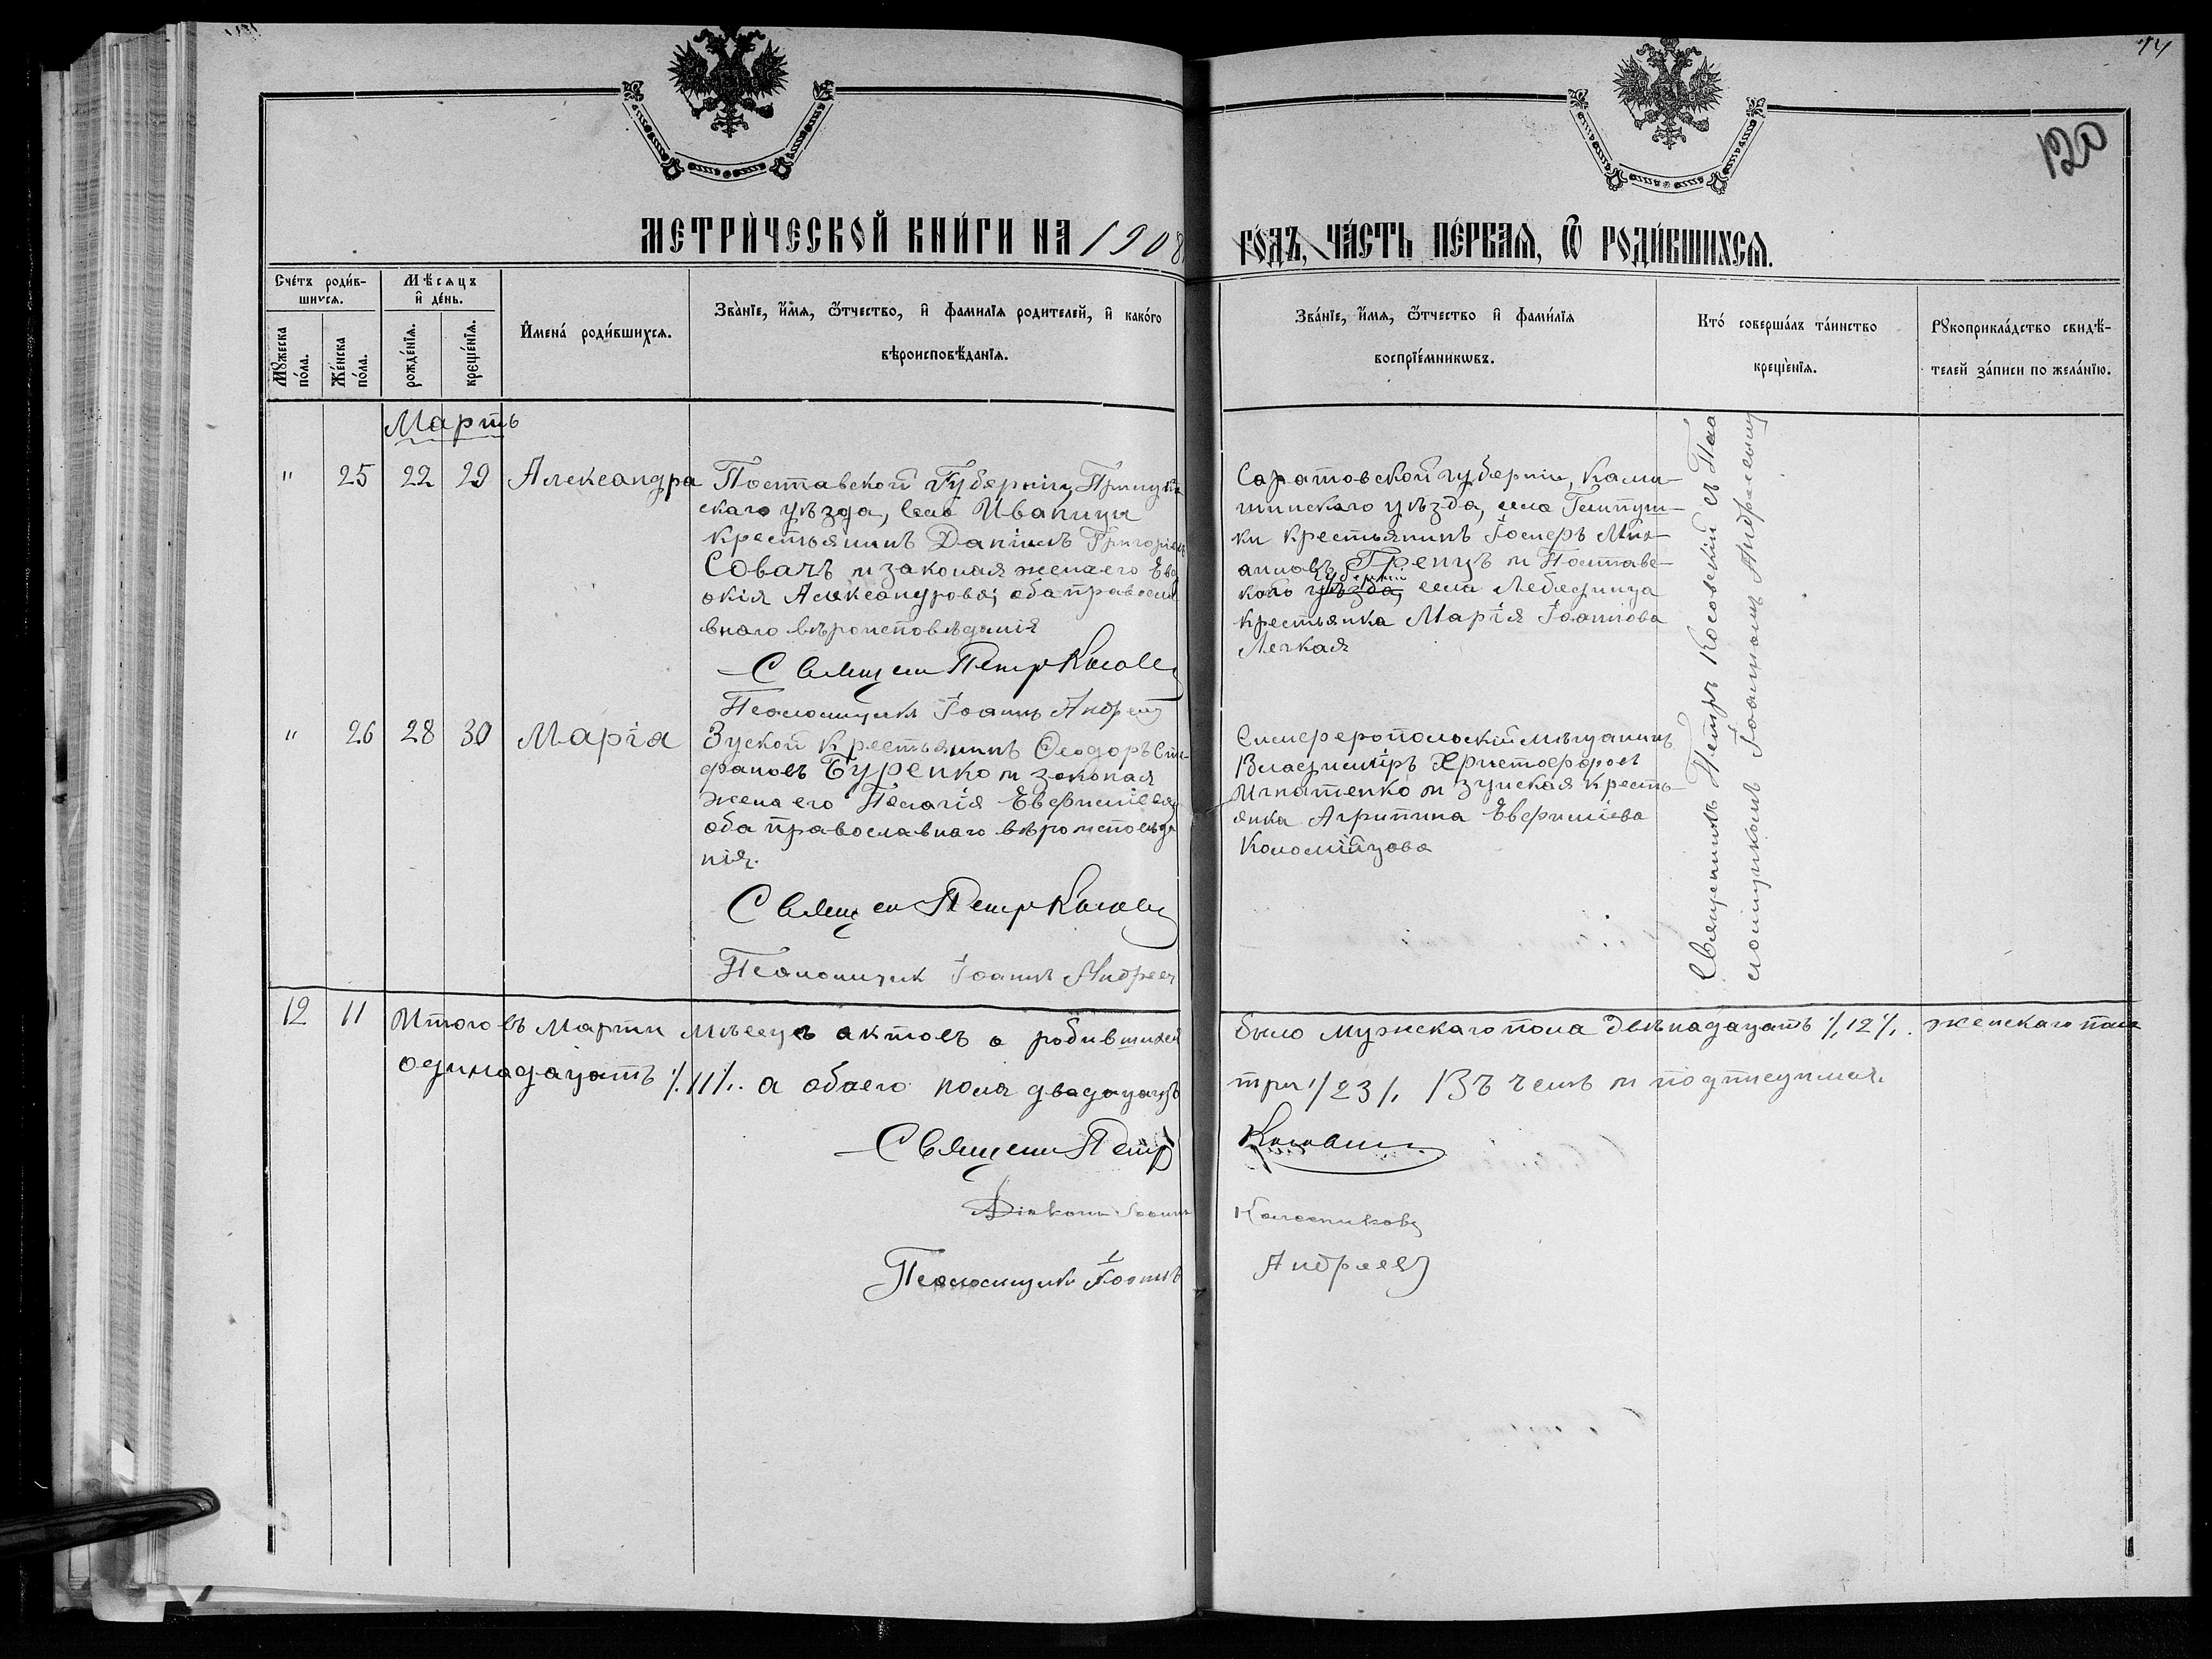 14
120
МЕТРИ́ЧЕСКОЙ КНИ́ГИ НА 1908
ГО́ДЪ, ЧА́СТЬ ПЕ́РВАЯ, Ѿ РОДИ́ВШИХСЯ.
Сче́тъ роди́в-
шихся.
Мѣсяцъ
и де́нь.
Мꙋжеска по́ла.
Же́нска по́ла.
рожде́нїя.
креще́нїя.
Имена́ роди́вшихся.
Зва̀нїе, и́мя, ѿтчество, и фамилїя родителей, и како́го
вѣроисповѣ́данїя.
Зва́нїе, и́мя, ѿтчество и фами́лїя
воспрїе́мникѡвъ.
Кто́ соверша́лъ та́инство
креще́нїя.
Рꙋкоприкла́дство свидѣ́-
телей за́писи по жела́нїю.
Мартъ
" 25 22 29 Александра
Полтавской Губерніи, Прилук
скаго уѣзда, села Иваницы
крестьянинъ Даніилъ Григоріев
Совачъ и законая жена его Евд
окія Александрова; оба правосла
внаго вѣроисповѣданія
Священ Петр Косовск
Псаломщикъ Іоаннъ Андреев
Саратовской губерніи, Камы-
шинскаго уѣзда, села
ки крестьянинъ Іосифъ
Гренцъ и Полтавс-
кого уѣзда, губерніи села Лебединца
крестьянка Марія Іоаннова
Легкая
" 26 28 30 Марія
Зуской крестьянинъ Ѳеодоръ Сте-
фановъ Буренко и законая
жена его Пелагія Евфиміева
оба православнаго вѣроисповѣда
нія.
Священ Петр Косовск
Псаломщик Іоаннъ Андреев
Симферопольскій мѣщанинъ
Владиміръ Христофоровъ
Игнатенко и зуйская кресть-
янка Агрипина Евфиміева
Коломійцова
Священникъ Петръ Косовскій съ Пса
ломщикомъ Іоанномъ Андреевымъ
12 11 Итого въ Марти мѣсецѣ актовъ о родившихся было мужскаго пола двѣнадцать ∕.12∕. женскаго пола
одинадцать ∕.11∕. а обоего пола двадцать три ∕.23∕. Въ чемъ и подписуимся.
Священ Петр Косовский
Діаконъ Іоаннъ Колосниковъ
Псаломщикъ Іоаннъ Андреевъ